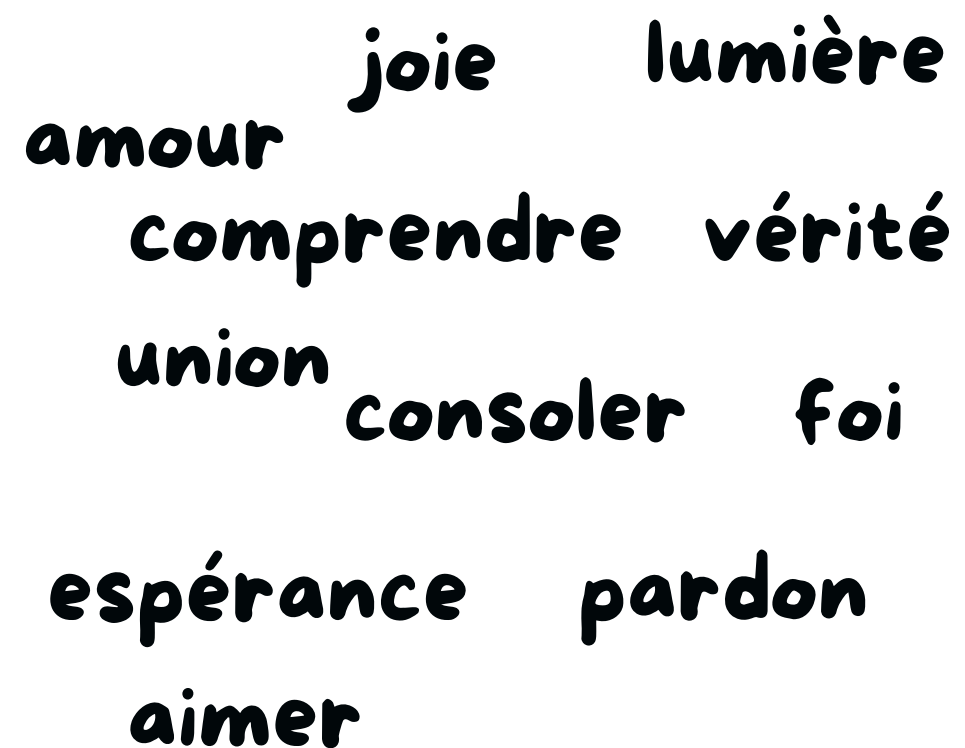 joie lumière
amour
comprendre vérité
union
consoler foi
espérance pardon
aimer